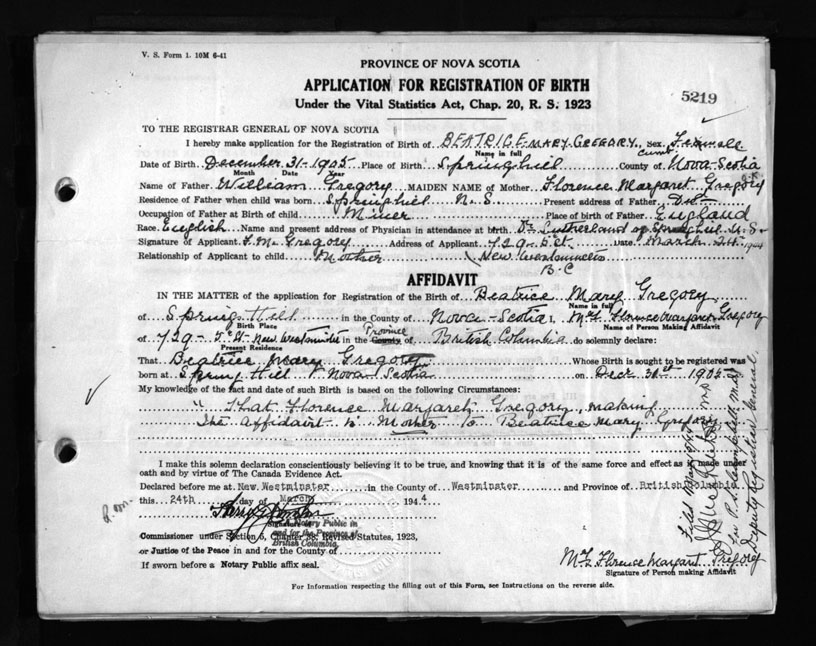 V. S. Form 1. 10M 6-41
PROVINCE OF NOVA SCOTIA
APPLICATION FOR REGISTRATION OF BIRTH
Under the Vital Statistics Act, Chap. 20, R. S. 1923
5219
TO THE REGISTRAR GENERAL OF NOVA SCOTIA
I hereby make application for the Registration of Birth of BEATRICE MARY GREGORY, Sex Female
Name in full
Date of Birth December 31-1905 Place of Birth Springhill County of Nova-Scotia
Month Date Year
Name of Father William Gregory MAIDEN NAME of Mother Florence Margaret Gregory
Residence of Father when child was born Springhill N. S. Present address of Father
Occupation of Father at Birth of child Miner Place of birth of Father England
Race English Name and present address of Physician in attendance at birth Dr Sutherland of Springhill N. S.
Signature of Applicant F. M. Gregory Address of Applicant 729- 5.St Date March 24. 1944
Relationship of Applicant to child Mother New Westminster
B-C
AFFIDAVIT
IN THE MATTER of the application for Registration of the Birth of Beatrice Mary Gregory
of Spring Hill in the County of Nova-Scotia I, Mrs Florence Margaret Gregory
Birth Place Name in full Name of Person Making Affidavit
of 729- 5.St New Westminster in the County of Province British Columbia do solemnly declare:
Present Residence
That Beatrice Mary Gregory Whose Birth is sought to be registered was
born at Spring Hill Nova Scotia on Dec. 31st 1905
My knowledge of the fact and date of such Birth is based on the following Circumstances:
" That Florence Margaret Gregory, making
The Affidavit is Mother to Beatrice Mary Gregory
I make this solemn declaration conscientiously believing it to be true, and knowing that it is of the same force and effect as if made under
oath and by virtue of The Canada Evidence Act.
Declared before me at New Westminster in the County of Westminster and Province of British Columbia
this 24th day of March 1944
Signature
Notary Public in
and for the Province of
British Columbia
Commissioner under Section 5, Chapter 38, Revised Statutes, 1923,
or Justice of the Peace in and for the County of
If sworn before a Notary Public affix seal.
Mrs Florence Margaret Gregory
Signature of Person making Affidavit
For Information respecting the filling out of this Form, see Instructions on the reverse side.
Deputy Registrar General.